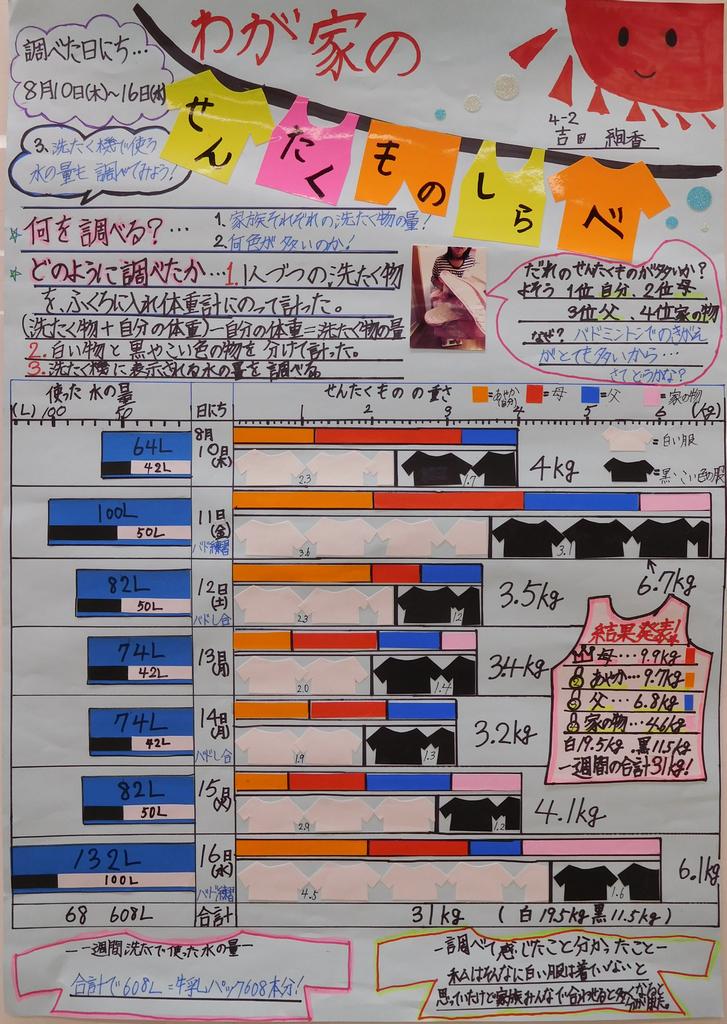 わが家の
せんたくものしらべ
調べた日にち…
8月10日(木)～16日(水)
4-2
吉田 絢香
3. 洗たく機で使う
水の量も調べてみよう!
何を調べる?…
1. 家族それぞれの洗たく物の量!
2. 何色が多いのか!
どのように調べたか…1. 1人づつの洗たく物
を、ふくろに入れ体重計にのって計った。
(洗たく物+自分の体重)-自分の体重=洗たく物の量
2. 白い物と黒やこい色の物を分けて計った。
3. 洗たく機に表示される水の量を調べる
だれのせんたくものが多いか?
よそう 1位 自分、2位 母
3位 父、4位 家の物
なぜ? バドミントンでのきがえ
がとても多いから…
さてどうかな?
使った水の量
(L) 100 50
日にち
せんたくものの重さ
=あやか(自分) =母 =父 =家の物
1 2 3 4 5 6 (kg)
=白い服
=黒・こい色の服
64L
42L
8月
10日(木)
2.3 1.7
4kg
100L
50L
11日(金)
バド練習
3.6 3.1
6.7kg
82L
50L
12日(土)
バドし合
2.3 1.2
3.5kg
74L
42L
13日(日)
2.0 1.4
3.4kg
74L
42L
14日(月)
バドし合
1.9 1.3
3.2kg
82L
50L
15日(火)
2.9 1.2
4.1kg
132L
100L
16日(水)
バド練習
4.5 1.6
6.1kg
結果発表!
母…9.9kg
あやか…9.7kg
父…6.8kg
家の物…4.6kg
白19.5kg 黒11.5kg
一週間の合計31kg!
608L
合計
31kg (白19.5kg 黒11.5kg)
一一週間洗たくで使った水の量一
合計で608L=牛乳パック608本分!
一調べて感じたこと分かったこと一
私はそんなに白い服は着ていないと
思っていたけど家族みんなで合わせると多くなると
分かりました。